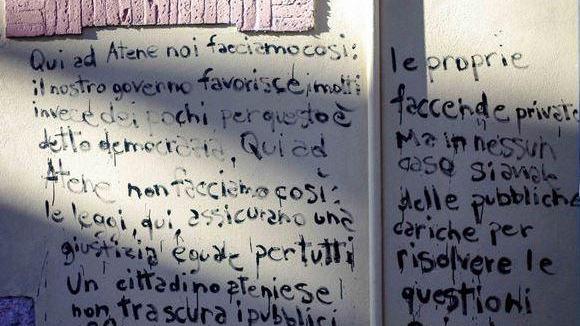 Qui ad Atene noi facciamo così:
il nostro governo favorisce i molti
invece dei pochi per questo è
detto democrazia. Qui ad
Atene non facciamo così:
le leggi, qui, assicurano una
giustizia eguale per tutti
Un cittadino ateniese
non trascura i pubblici
le proprie
faccende private
Ma in nessun
caso si avvale
delle pubbliche
cariche per
risolvere le
questioni